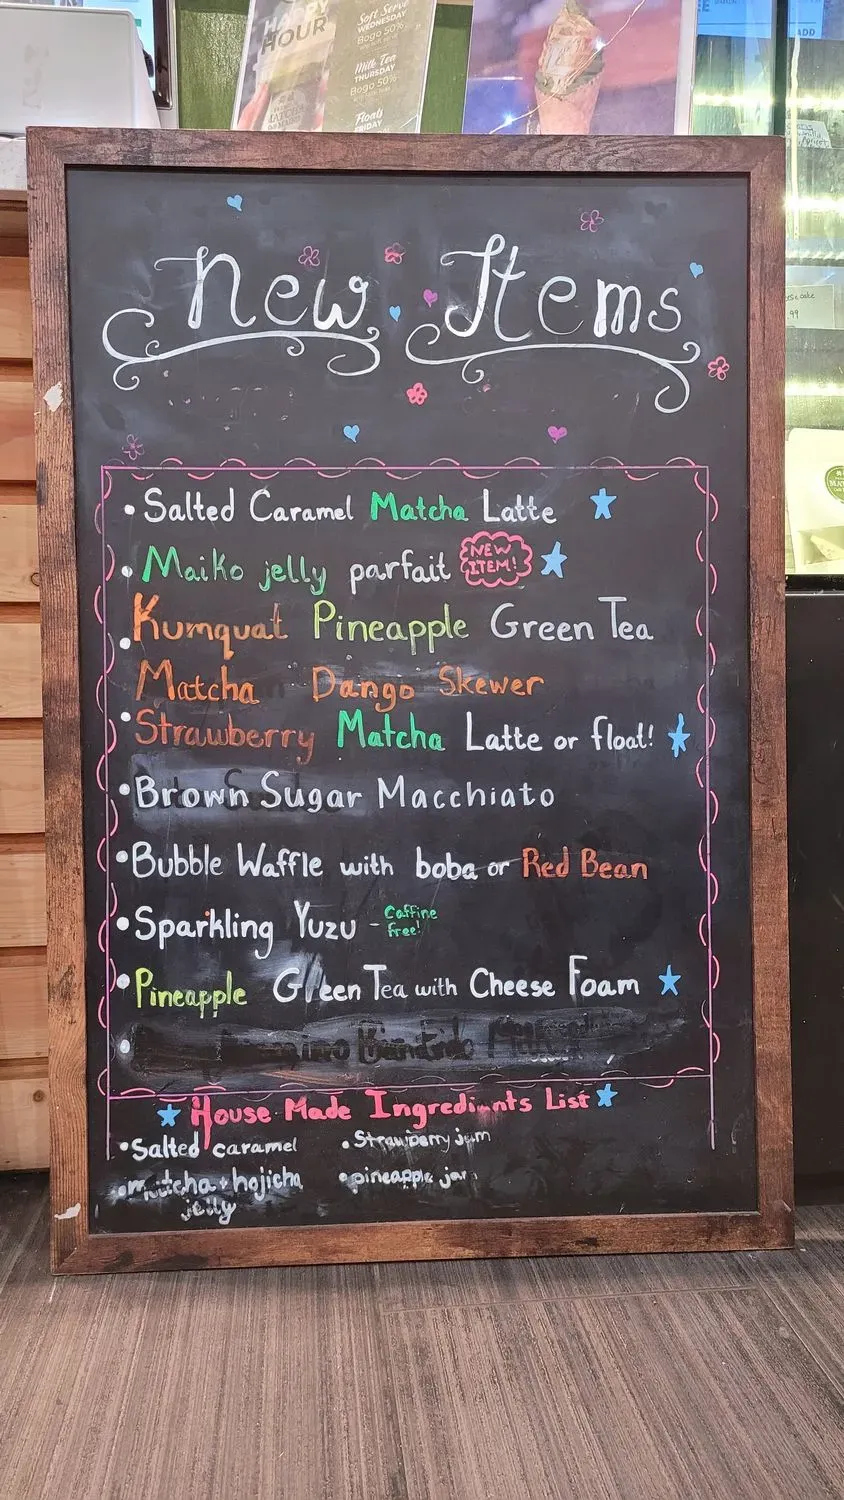 HAPPY
HOUR
Soft Serve
WEDNESDAY
Bogo 50%
Milk Tea
THURSDAY
Bogo 50%
Floats
FRIDAY
New Items
• Salted Caramel Matcha Latte
• Maiko jelly parfait NEW ITEM!
• Kumquat Pineapple Green Tea
Matcha Dango Skewer
• Strawberry Matcha Latte or float!
• Brown Sugar Macchiato
• Bubble Waffle with boba or Red Bean
• Sparkling Yuzu - Caffine free!
• Pineapple Green Tea with Cheese Foam
House Made Ingredients List
• Salted caramel
• matcha + hojicha
jelly
• Strawberry jam
• pineapple jam